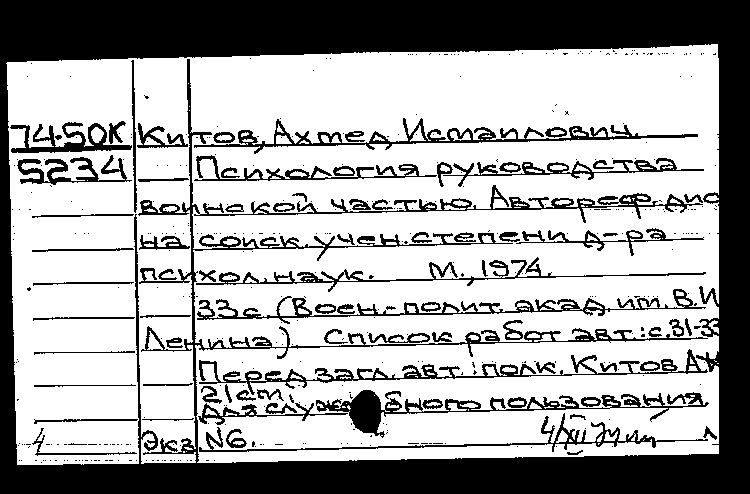 74-50К Китов, Ахмед Исмаилович.
5234 Психология руководства
воинской частью. Автореф. дис
на соиск. учен. степени д-ра
психол. наук. М., 1974.
33 с. (Воен.-полит. акад. им. В.И
Ленина). Список работ авт.: с. 31-33
Перед загл. авт.: полк. Китов А
21 cm.
Для служебного пользования
4 Экз. №6. 4/XII